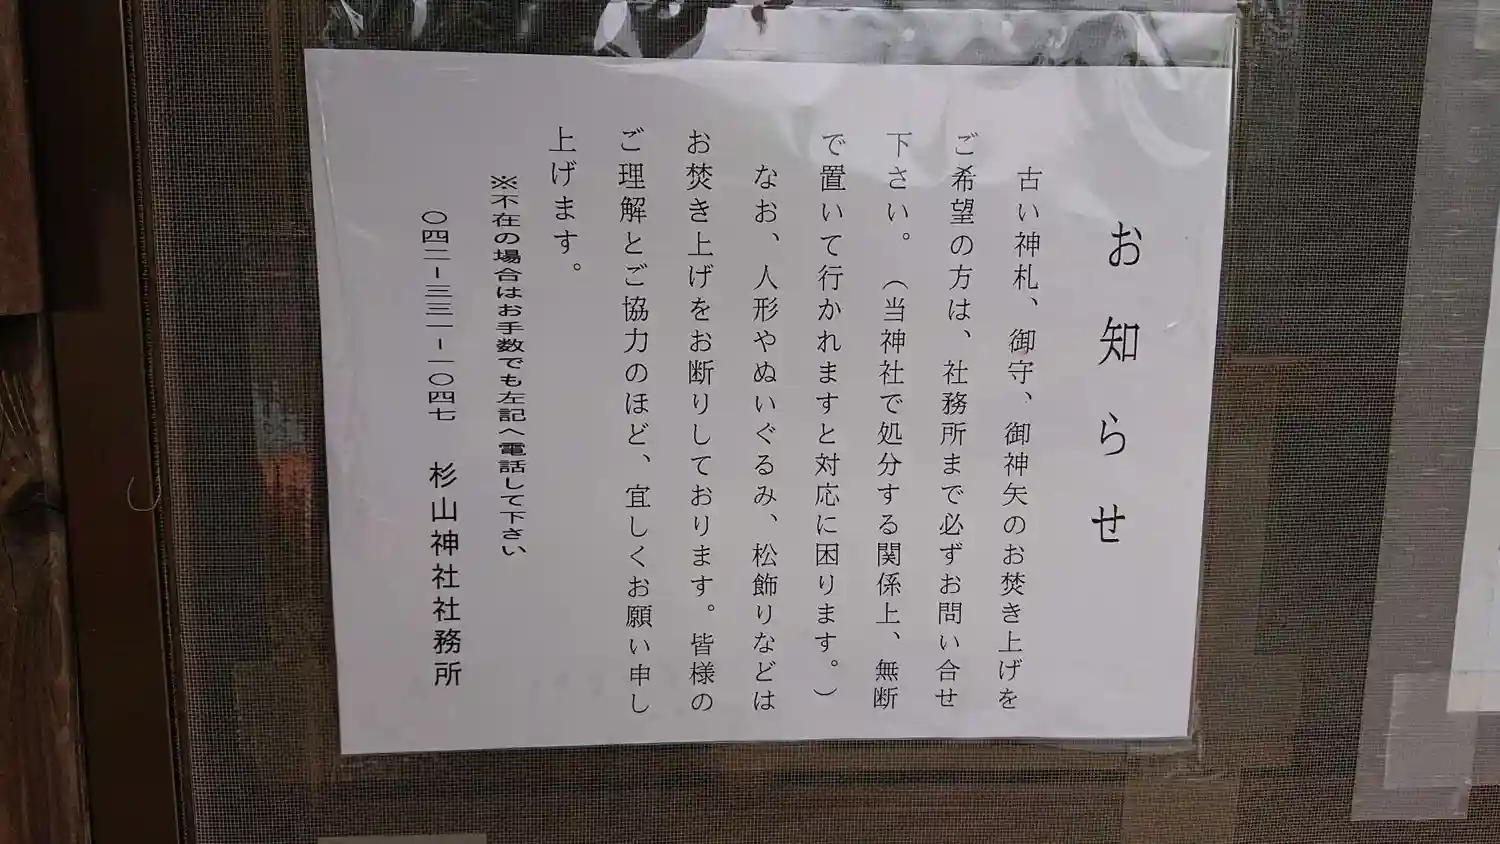 お知らせ
古い神札、御守、御神矢のお焚き上げを
ご希望の方は、社務所まで必ずお問い合せ
下さい。（当神社で処分する関係上、無断
で置いて行かれますと対応に困ります。）
なお、人形やぬいぐるみ、松飾りなどは
お焚き上げをお断りしております。皆様の
ご理解とご協力のほど、宜しくお願い申し
上げます。
※不在の場合はお手数でも左記へ電話して下さい
〇四二-三三一-一〇四七　杉山神社社務所